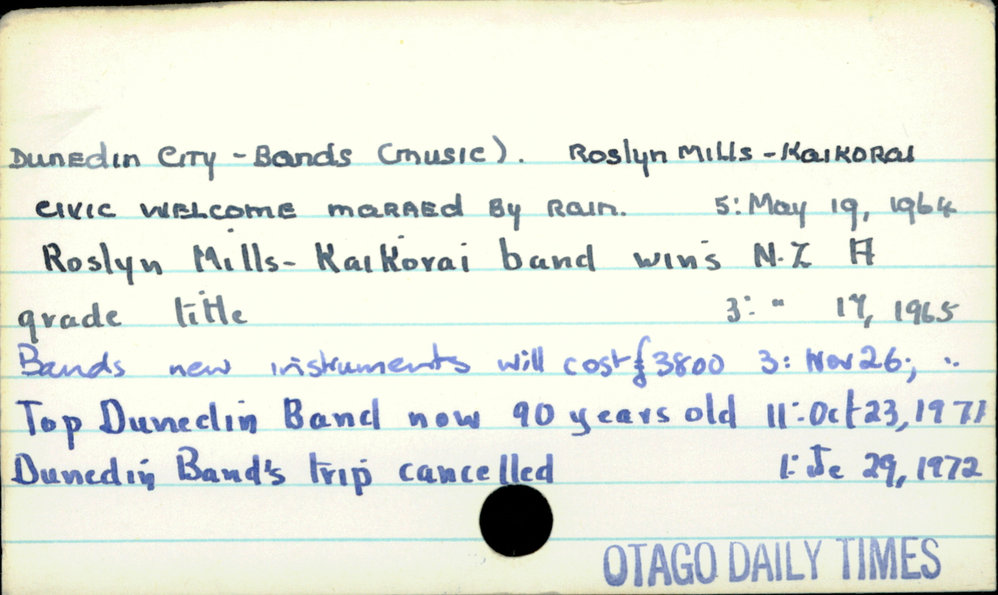 Dunedin City - Bands (music). Roslyn Mills - Kaikorai
civic welcome marred by rain. 5: May 19, 1964
Roslyn Mills - Kaikorai band wins N.Z A
grade title 3: " 17, 1965
Bands new instruments will cost £3800 3: Nov 26; "
Top Dunedin Band now 90 years old 11: Oct 23, 1971
Dunedin Band's trip cancelled 1: Je 29, 1972
OTAGO DAILY TIMES